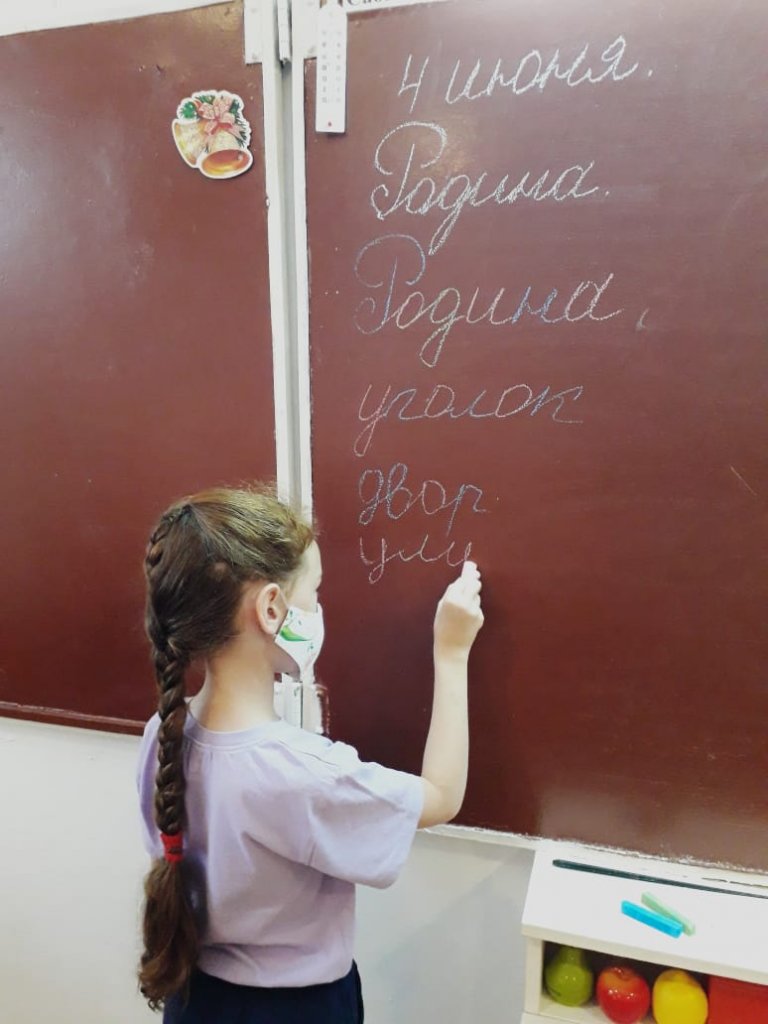 4 июня.
Родина.
Родина,
уголок
двор
ули